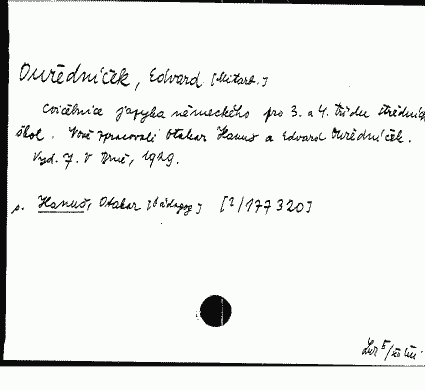 Ouředníček, Edvard [Mitarb.]
Cvičebnice jazyka německého pro 3. a 4. třídu středních
škol. Nově zpracovali Otakar Hanuš a Edvard Ouředníček.
Vyd. 7. V Brně, 1929.
s. Hanuš, Otakar [Pädagog] [2/177320]